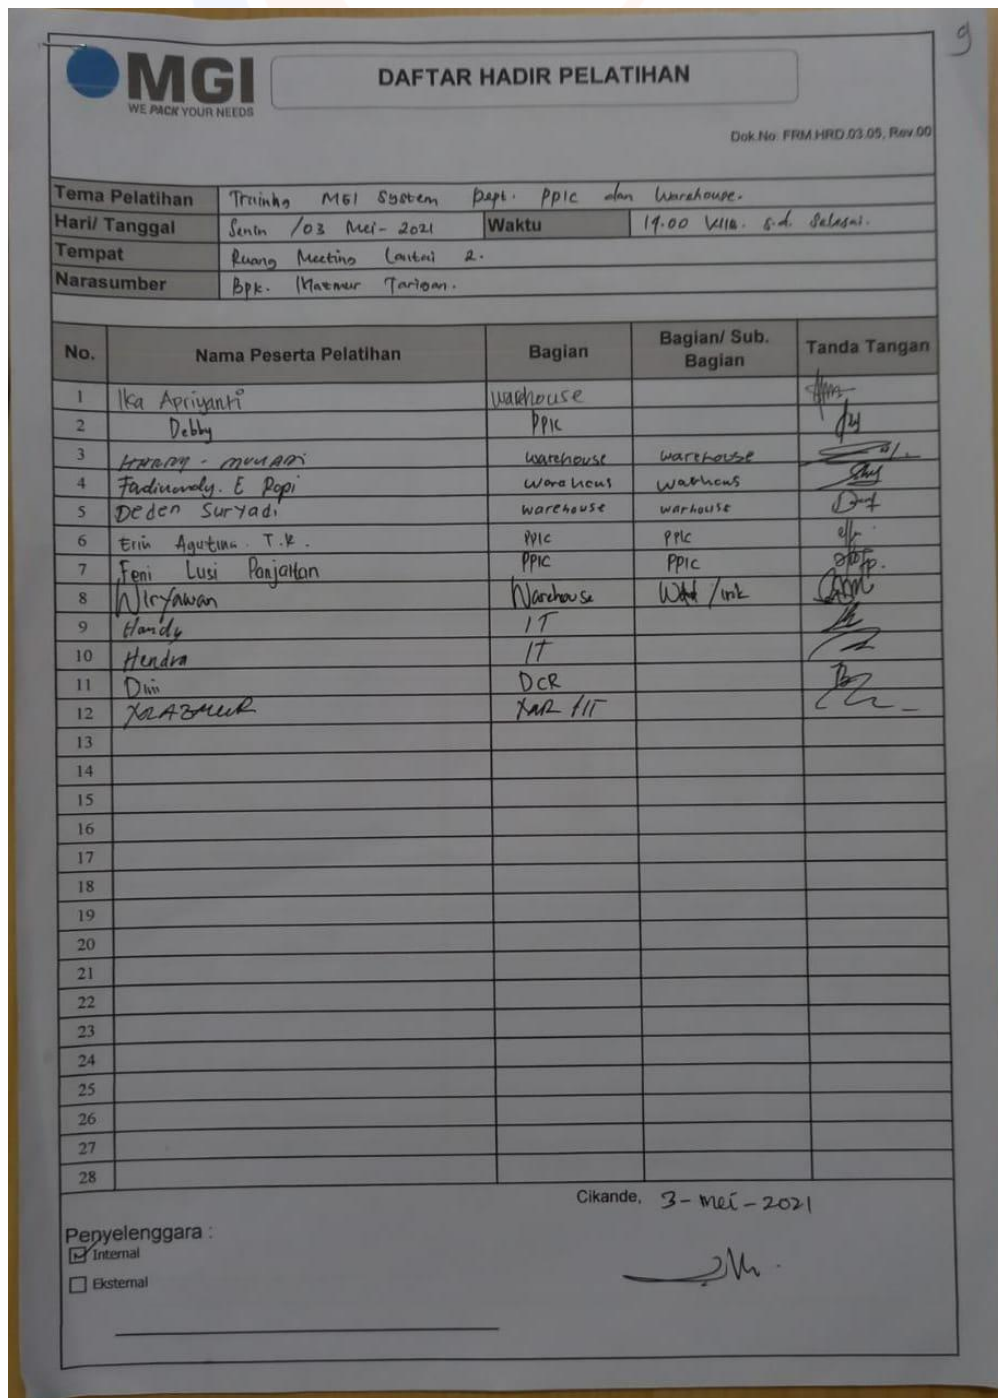 9
MGI
WE PACK YOUR NEEDS
DAFTAR HADIR PELATIHAN
Dok.No: FRM.HRD.03.05, Rev.00
Tema Pelatihan Training MGI System Dept. PPIC dan Warehouse.
Hari/ Tanggal Senin /03 Mei- 2021 Waktu 14.00 s.d. Selesai.
Tempat Ruang Meeting Lantai 2.
Narasumber Bpk. Tarigan.
No. Nama Peserta Pelatihan Bagian Bagian/ Sub. Bagian Tanda Tangan
1 Ika Apriyanti warehouse
2 Debby PPIC
3 warehouse warehouse
4 E Popi
5 Deden Suryadi warehouse warhouse
6 Erin Agutina. T.R. PPIC PPIC
7 Feni Lusi Panjaitan PPIC PPIC
8 Wiryawan Warehouse
9 Handy IT
10 Hendra IT
11 DCR
12
13
14
15
16
17
18
19
20
21
22
23
24
25
26
27
28
Cikande, 3-Mei-2021
Penyelenggara :
Internal
Eksternal